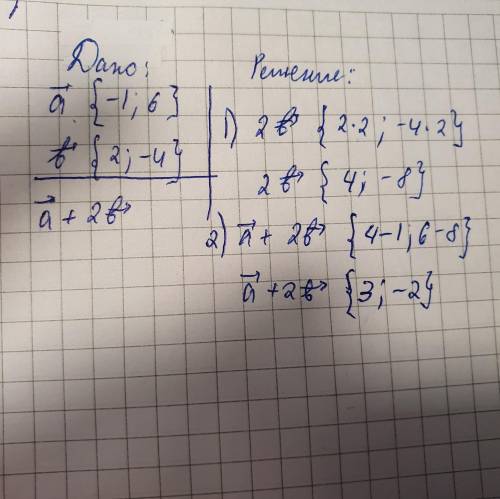 Дано:
a⃗ {-1; 6}
b⃗ {2; -4}
a⃗ + 2b⃗
Решение:
1) 2b⃗ {2·2; -4·2}
2b⃗ {4; -8}
2) a⃗ + 2b⃗ {4-1; 6-8}
a⃗ + 2b⃗ {3; -2}